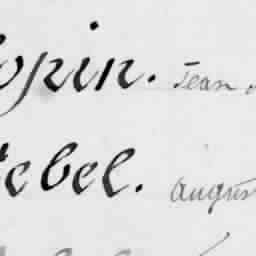 opin. Jean
ebel. Augus